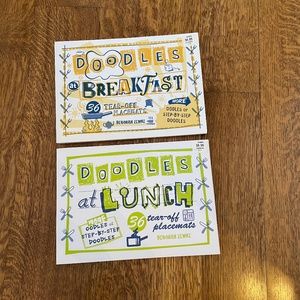 DOODLES
at BREAKFAST
36 TEAR-OFF
PLACEMATS
MORE
OODLES of
STEP-BY-STEP
DOODLES
DEBORAH ZEMKE
DOODLES
at LUNCH
OODLES of
STEP-BY-STEP
DOODLES
36 tear-off
placemats
DEBORAH ZEMKE